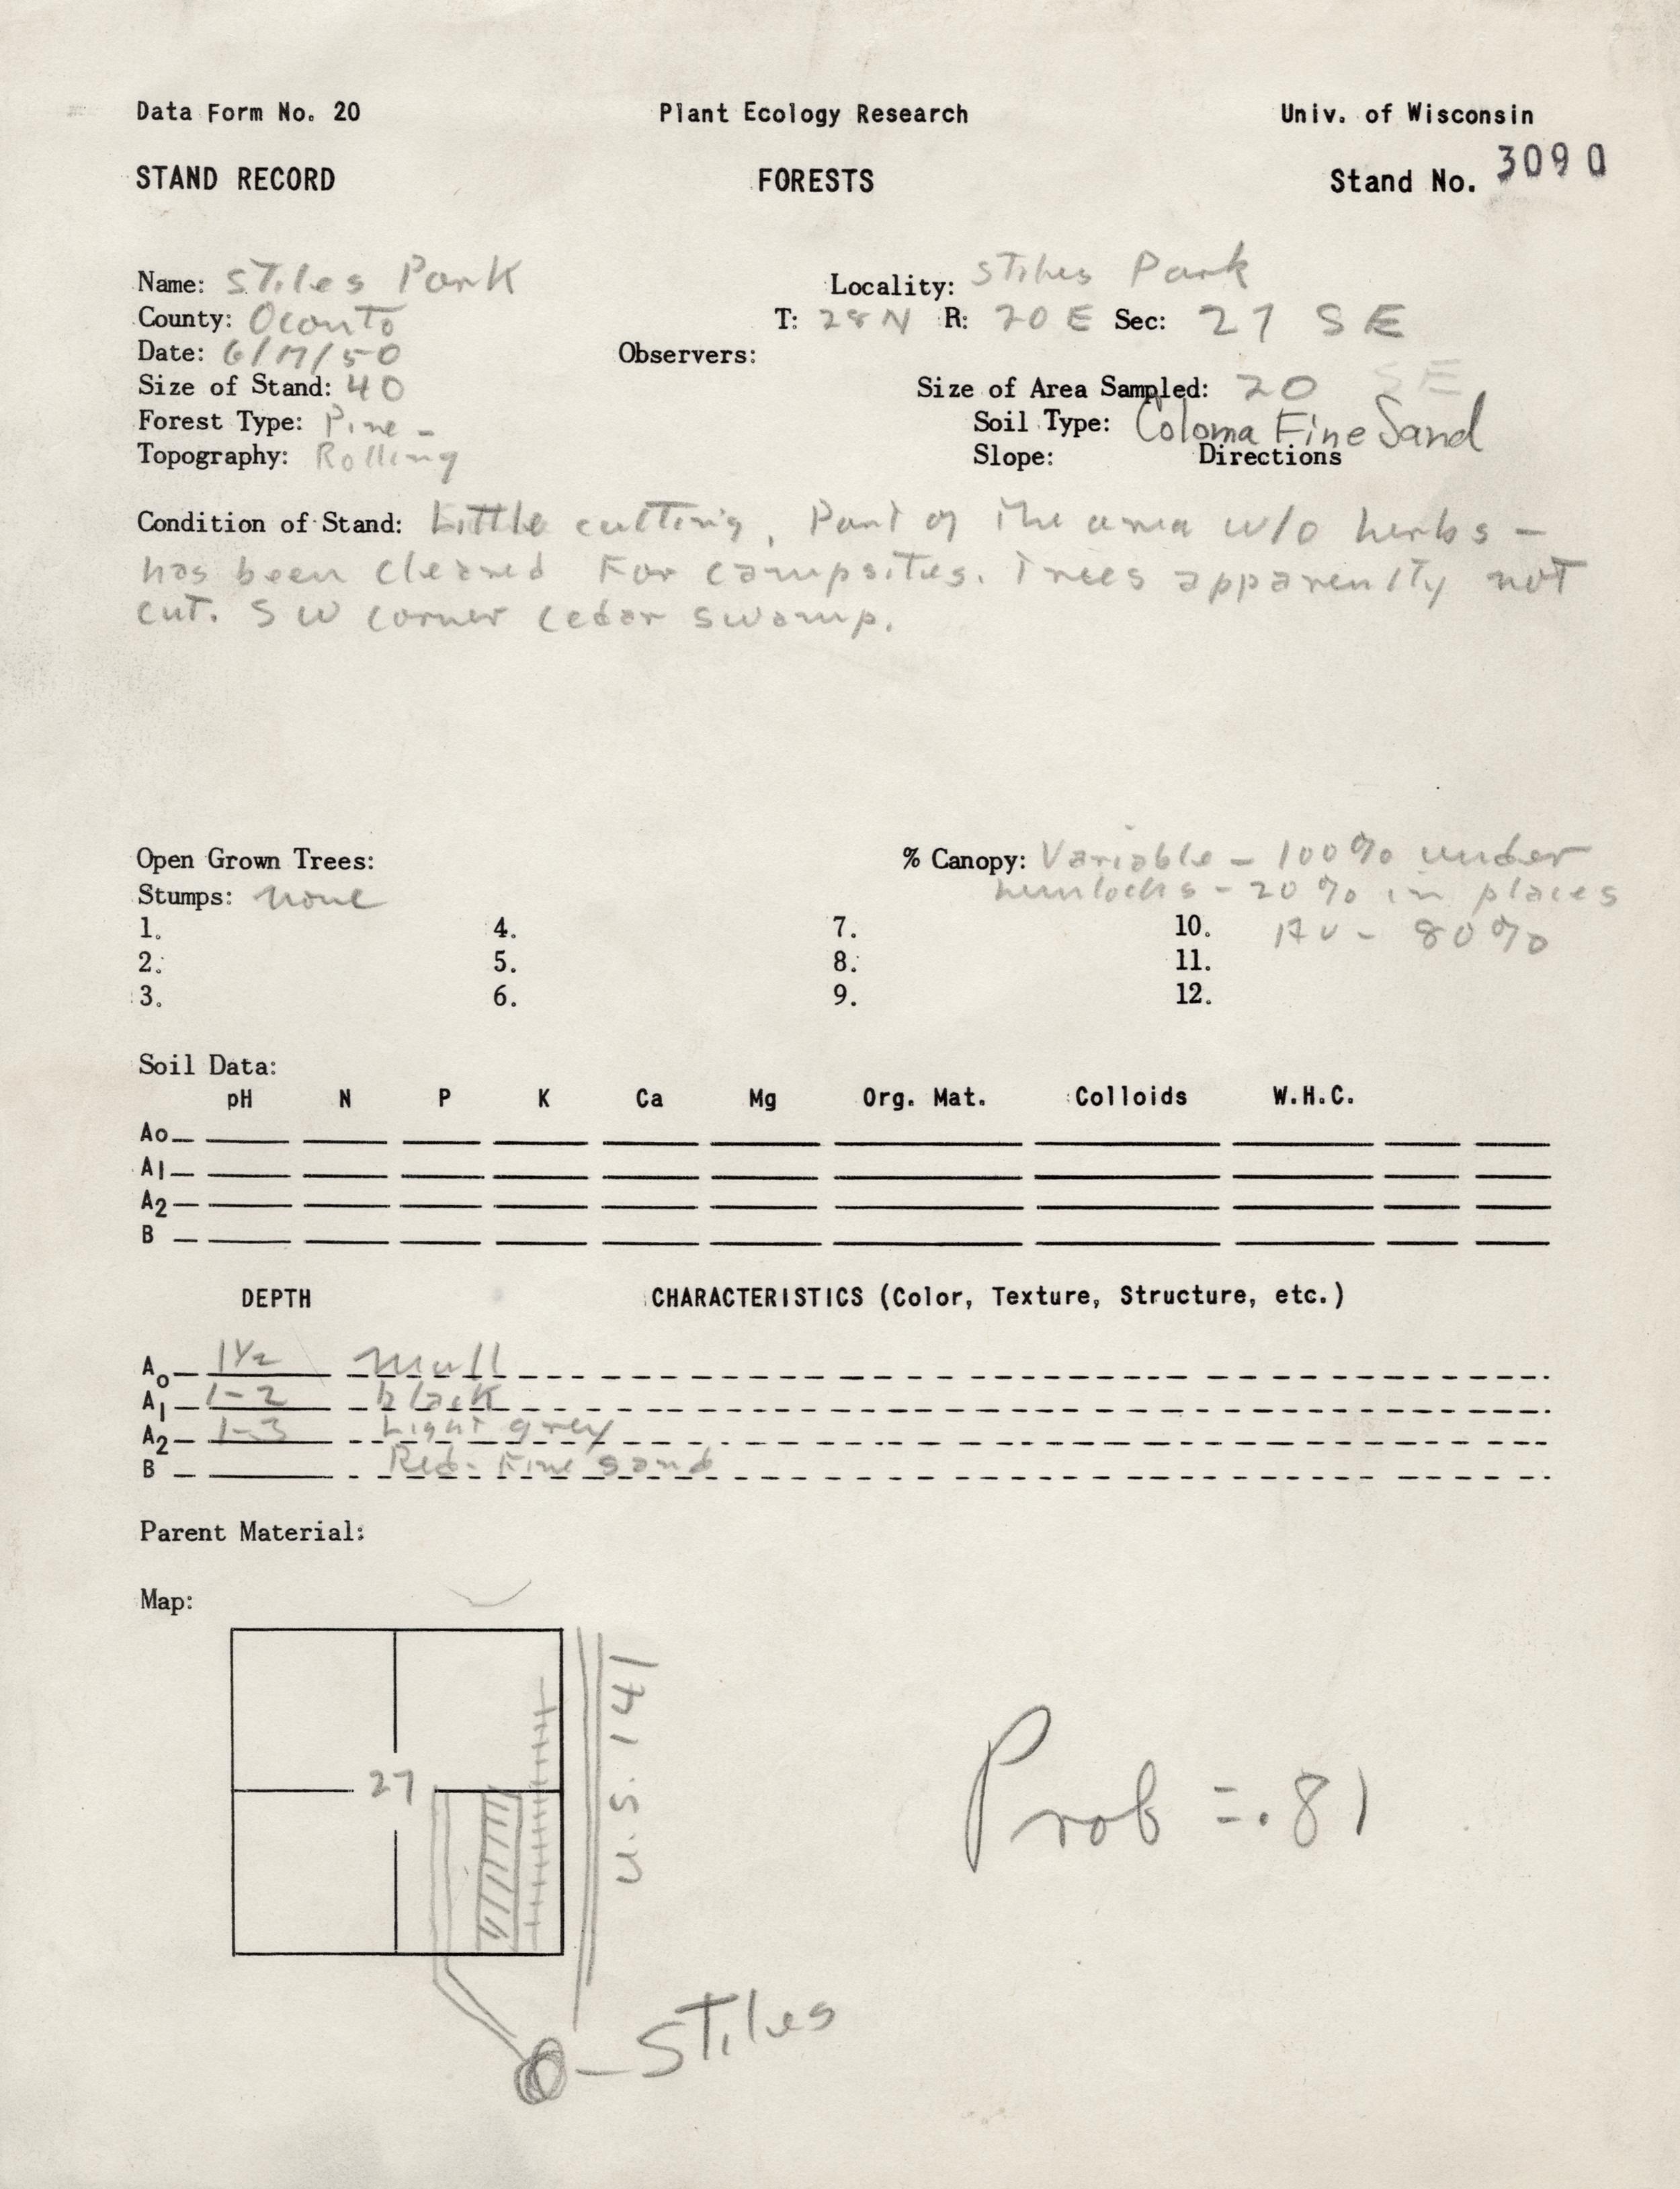 Data Form No. 20 Plant Ecology Research Univ. of Wisconsin
STAND RECORD FORESTS Stand No. 3090
Name: Stiles Park Locality: Stiles Park
County: Oconto T: 28N R: 20E Sec: 27 SE
Date: 6/17/50 Observers:
Size of Stand: 40 Size of Area Sampled: 20 SE
Forest Type: Pine - Soil Type: Coloma Fine Sand
Topography: Rolling Slope: Directions
Condition of Stand: Little cutting, Part of the area w/o herbs -
has been cleared For campsites. Trees apparently not
cut. SW corner cedar swamp.
Open Grown Trees: % Canopy: Variable - 100% under
Stumps: none hemlocks - 20% in places
1. 4. 7. 10. AV - 80%
2. 5. 8. 11.
3. 6. 9. 12.
Soil Data:
pH N P K Ca Mg Org. Mat. Colloids W.H.C.
Ao
A1
A2
B
DEPTH CHARACTERISTICS (Color, Texture, Structure, etc.)
Ao 1½ Mull
A1 1-2 black
A2 1-3 Light grey
B Red. Fine sand
Parent Material:
Map:
27
U.S. 141
Prob = .81
- Stiles